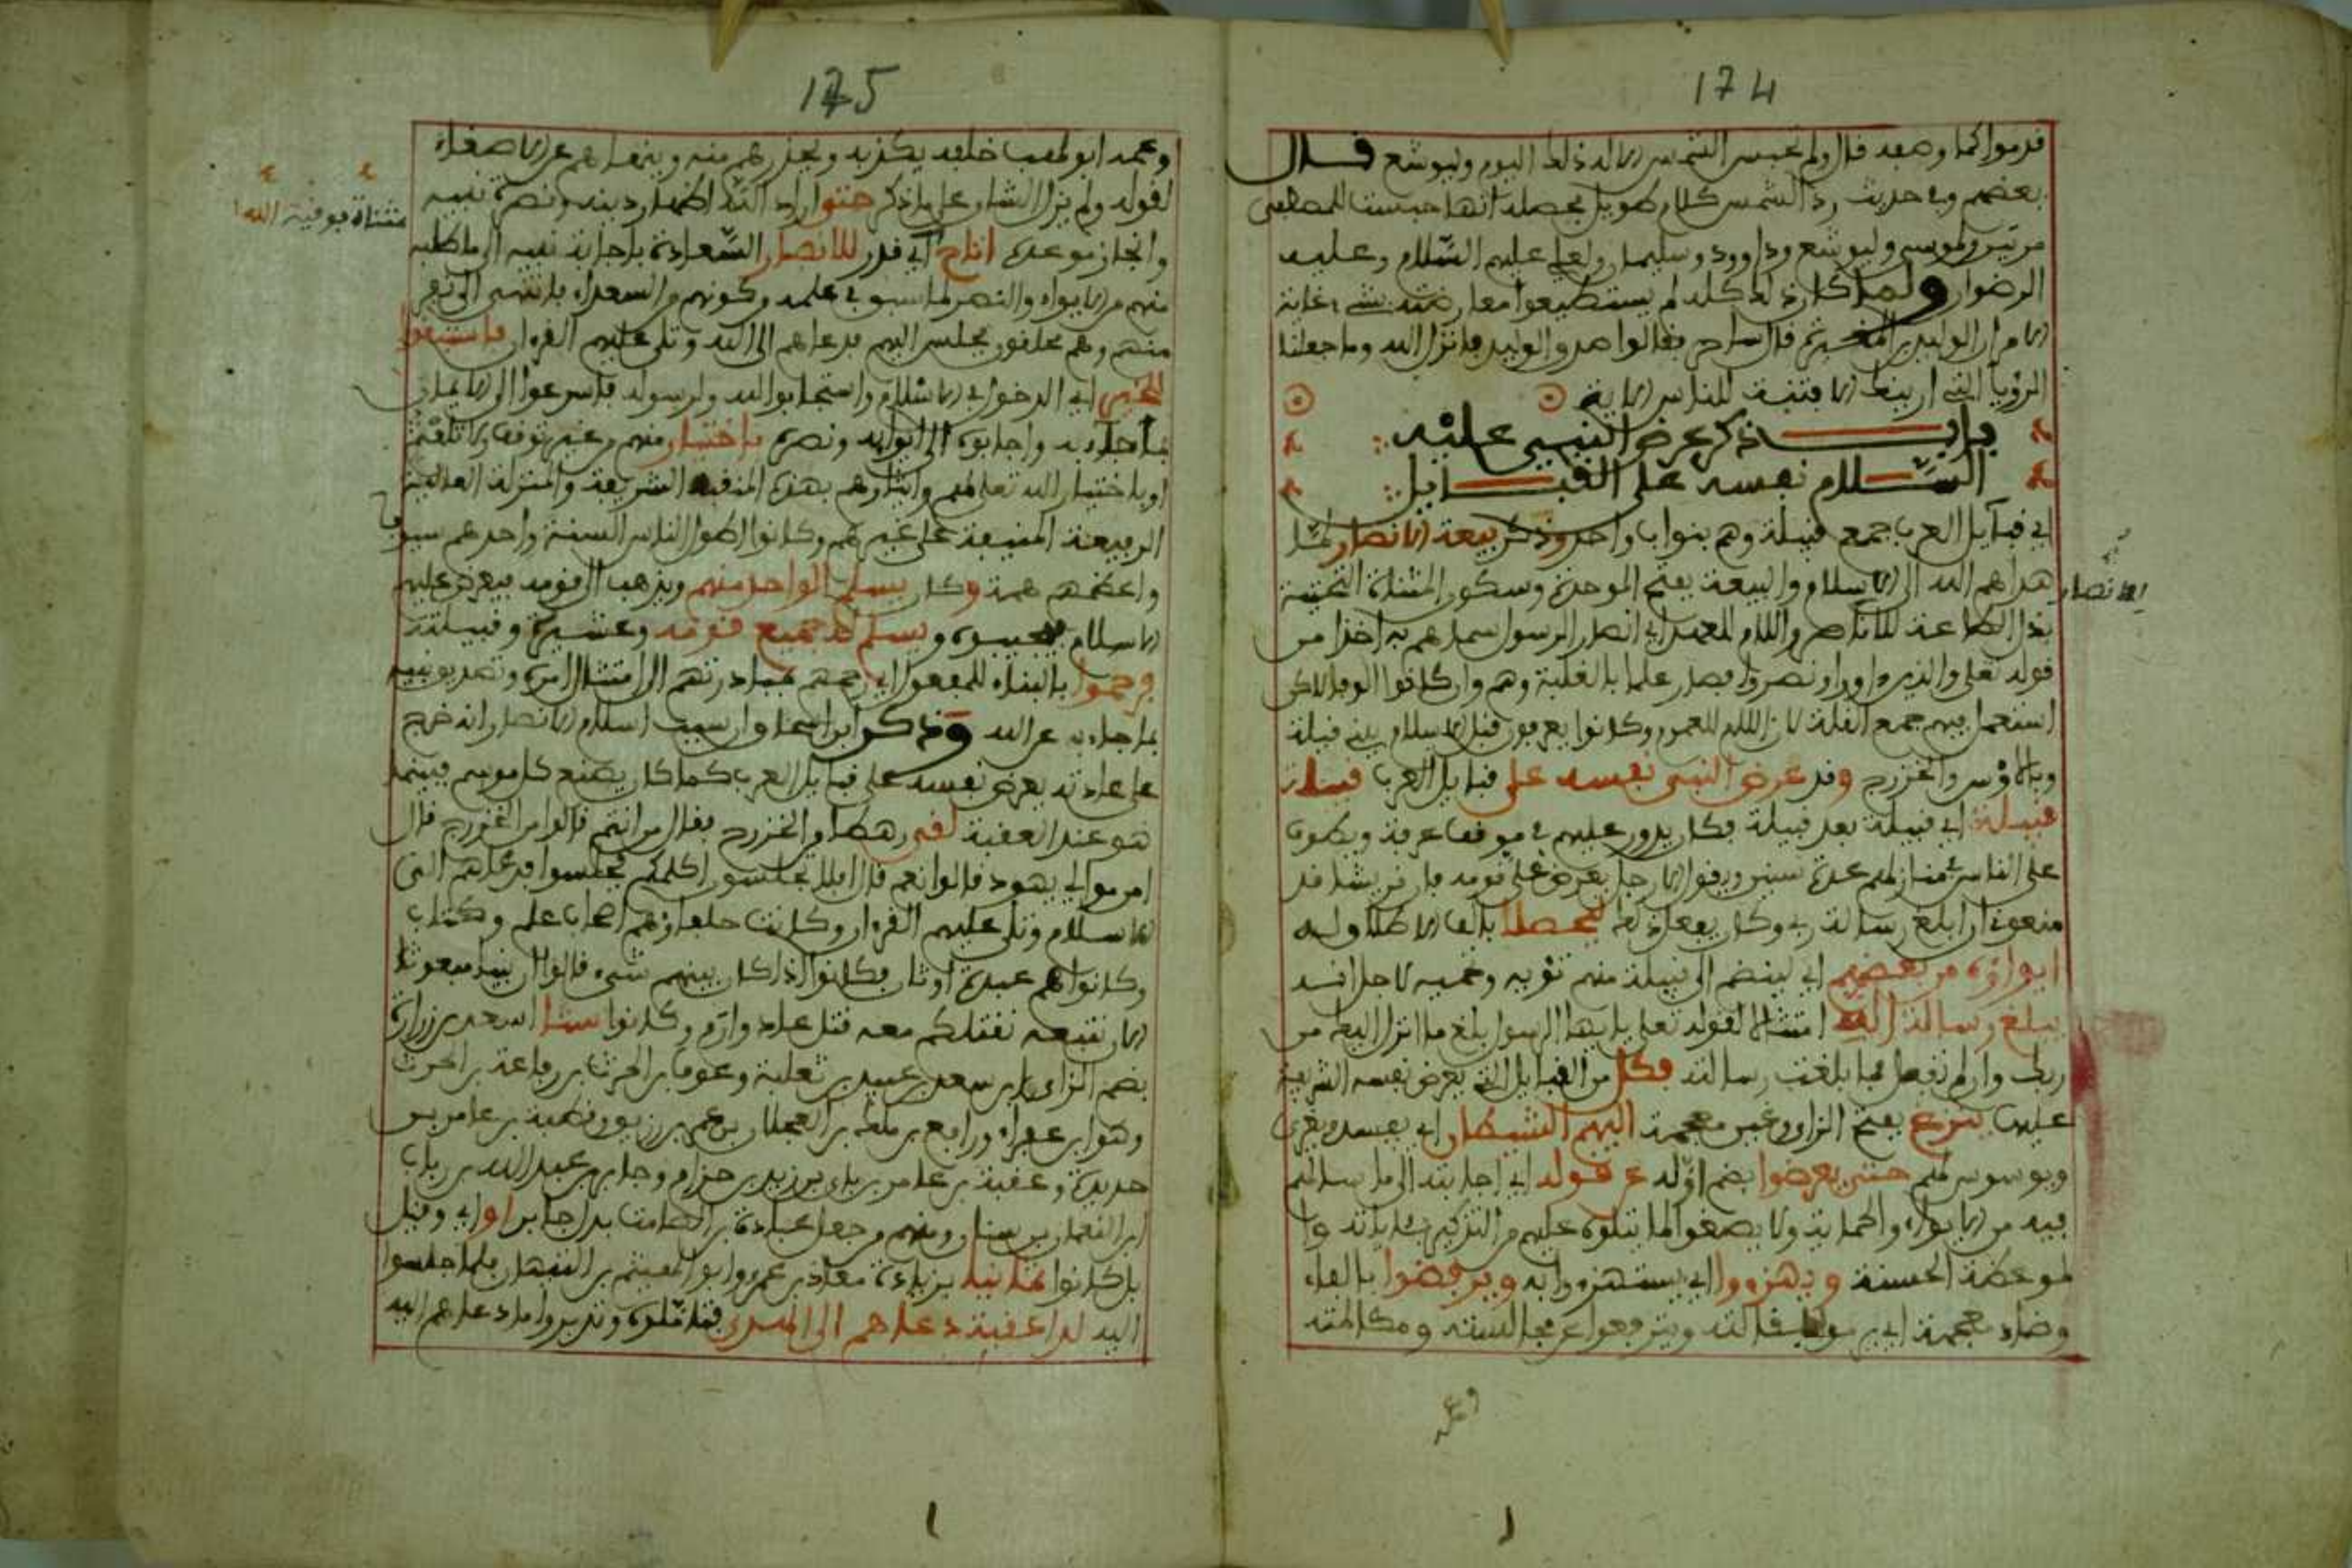 174
قدموا كما وصفه قال ولم تحبس الشمس الا له ذلك اليوم وليوشع قال
بعضهم وفي حديث رد الشمس كلام طويل محصله انها حبست للمصطفى
مرتين ولموسى وليوشع وداوود وسليمان ولعلي عليهم السلام وعليه
الرضوان ولما كان ذلك كله لم يستطيعوا معارضته بشيء غاية
الامر ان الوليد بن المغيرة قال ساحر فقالوا صدق الوليد فانزل الله وما جعلنا
الرؤيا التي اريناك الا فتنة للناس الاية
باب ذكر عرض النبي عليه
السلام نفسه على القبايل
اي قبآيل العرب جمع قبيلة وهم بنوا اب واحد وذكر بيعة الانصار لما
هداهم الله الى الاسلام والبيعة بفتح الموحدة وسكون المثناة التحتية
الانصار
بذل الطاعة للانصار واللام للعهد اي انصار الرسول سماهم به اخذا من
قوله تعلى والذين ءاووا ونصروا فصار علما بالغلبة وهم وان كانوا الوفا لاكن
استعمل فيهم جمع القلة لان اللام للعموم وكانوا يعرفون قبل الاسلام ببني قيلة
وبالاوس والخزرج وقد عرض النبي نفسه على قبايل العرب قبيلة
قبيلة اي قبيلة بعد قبيلة فكان يدور عليهم في موقف عرفة ويطوف
على الناس في منازلهم عدة سنين ويقول الا رجل يعرض على قومه فان قريشا قد
منعوني ان ابلغ رسالة ربي وكان يفعل ذلك ليحصلا بالف الاطلاق له
ايواؤه من بعضهم اي لينضم الى قبيلة منهم تؤيه وتحميه لاجل انه
يبلغ رسالة الله امتثالا لقوله تعلى يا ايها الرسول بلغ ما انزل اليك من
ربك وان لم تفعل فما بلغت رسالته فكل من القبايل التي يعرض نفسه الشريفة
عليها ينزغ بفتح الزاي وغين معجمة اليهم الشيطان اي يفسد ويغري
ويوسوس لهم حتى يعرضوا بضم اوله عن قوله اي اجابته الى ما سالهم
فيه من الايواء والحماية ولا يصغوا لما يتلوه عليهم من التذكير بئاياته وا
لموعظة الحسنة ويهزءوا اي يستهزءوا به ويرفضوا بالفاء
وضاد معجمة اي يرموا مقالته ويترفعوا عن مجالسته ومكالمته
وعمه
175
وعمه ابو لهب خلفه يكذبه ويحذرهم منه وينهاهم عن الاصغاء
لقوله ولم يزل الشان على ما ذكر حتى اراد الله اظهار دينه ونصرة نبيه
وانجاز موعده اتاح اي قدر للانصار السعادة باجابة نبيه الى ما طلبه
مثناة فوقية
منهم من الايواء والنصر لما سبق في علمه وكونهم من السعداء فانتهى الى نفر
منهم وهم محلقون فجلس اليهم فدعاهم الى الله وتلى عليهم القرءان فاستبقوا
للخير اي الدخول في الاسلام واستجابوا لله ولرسوله فاسرعوا الى الايمان
بما جاء به واجابوه الى ايوائه ونصره باختيار منهم من غير توقف ولا تلعثم
او باختيار الله تعلى لهم وايثارهم بهذه المنقبة الشريفة والمنزلة العالية
الرفيعة المنيفة على غيرهم وكانوا اطول الناس السنة واحدهم سيوفا
واعظمهم همة وكان يسلم الواحد منهم ويذهب الى قومه فيعرض عليهم
الاسلام فيجيبوه ويسلم له جميع قومه وعشيرته وقبيلته
فرحموا بالبناء للمفعول اي رحمهم بمبادرتهم الى امتثال امره وتصديق نبيه
بما جاء به عن الله وذكر ابن اسحاق ان سبب اسلام الانصار انه خرج
على عادته يعرض نفسه على قبايل العرب كما كان يصنع كل موسم فبينما
هو عند العقبة لقي رهطا من الخزرج فقال من انتم قالوا من الخزرج قال
امن موالي يهود قالوا نعم قال افلا تجلسون اكلمكم فجلسوا فدعاهم الى
الاسلام وتلى عليهم القرءان وكانت حلفاؤهم اصحاب علم وكتاب
وكانوا هم عبدة اوثان فكانوا اذا كان بينهم شيء قالوا ان نبيا مبعوثا
الان نتبعه نقتلكم معه قتل عاد وارم وكانوا ستا اسعد بن زرارة
بضم الزاي بن سعد بن عبيد بن ثعلبة وعوف بن الحرث بن رفاعة بن الحرث
وهو ابن عفراء ورافع بن ملك بن العجلان بن عمر بن زريق وقطبة بن عامر بن
حديدة وعقبة بن عامر بن نابي بن زيد بن حزام وجابر بن عبد الله بن رياب
ابن النعمان بن سنان ومنهم من جعل عبادة بن الصامت بدل جابر او اي وقيل
بل كانوا ثمانية بزيادة معاذ بن عمرو وابو الهيثم بن التيهان فلما جلسوا
اليه لدا عقبة دعاهم الى الهدى فتاملوه وتدبروا ما دعاهم اليه